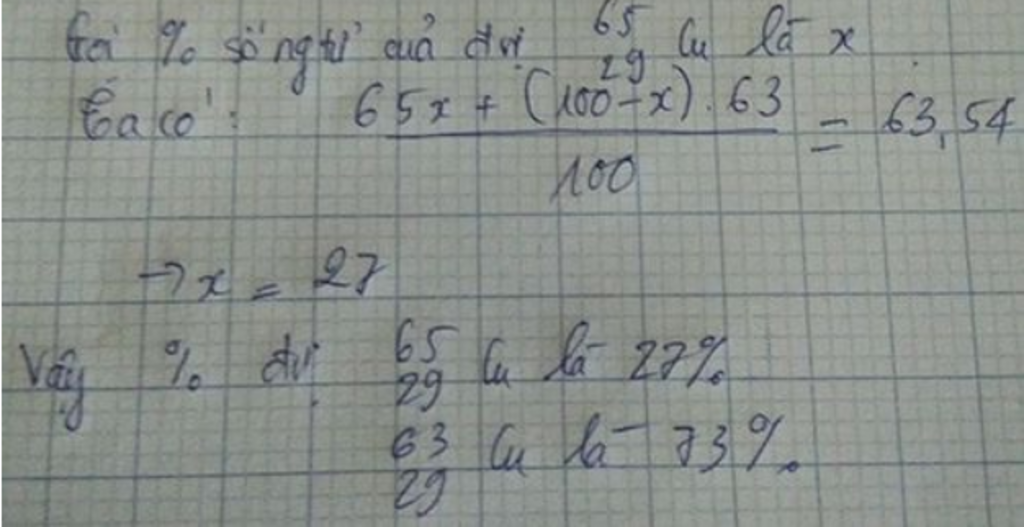 Gọi % số ngtử của đvị ⁶⁵₂₉Cu là x
Ta có: (65x + (100-x).63)/100 = 63,54
→ x = 27
Vậy % đvị ⁶⁵₂₉Cu là 27%
⁶³₂₉Cu là 73%.